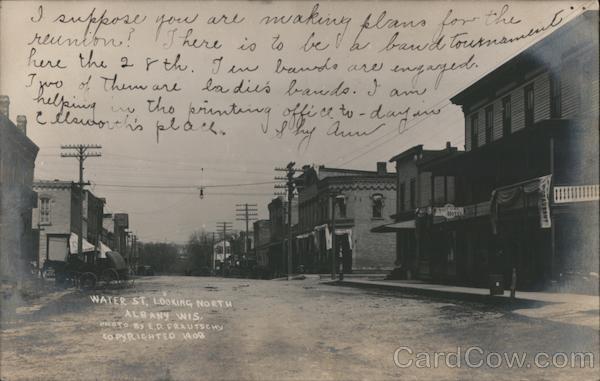 I suppose you are making plans for the
reunion? There is to be a band tournament
here the 28th. Ten bands are engaged.
Two of them are ladies bands. I am
helping in the printing office to-day in
Ellsworth's place.
HOTEL
WATER ST, LOOKING NORTH
ALBANY WIS.
PHOTO BY E.D. FRAUTSCHY
COPYRIGHTED 1908
CardCow.com